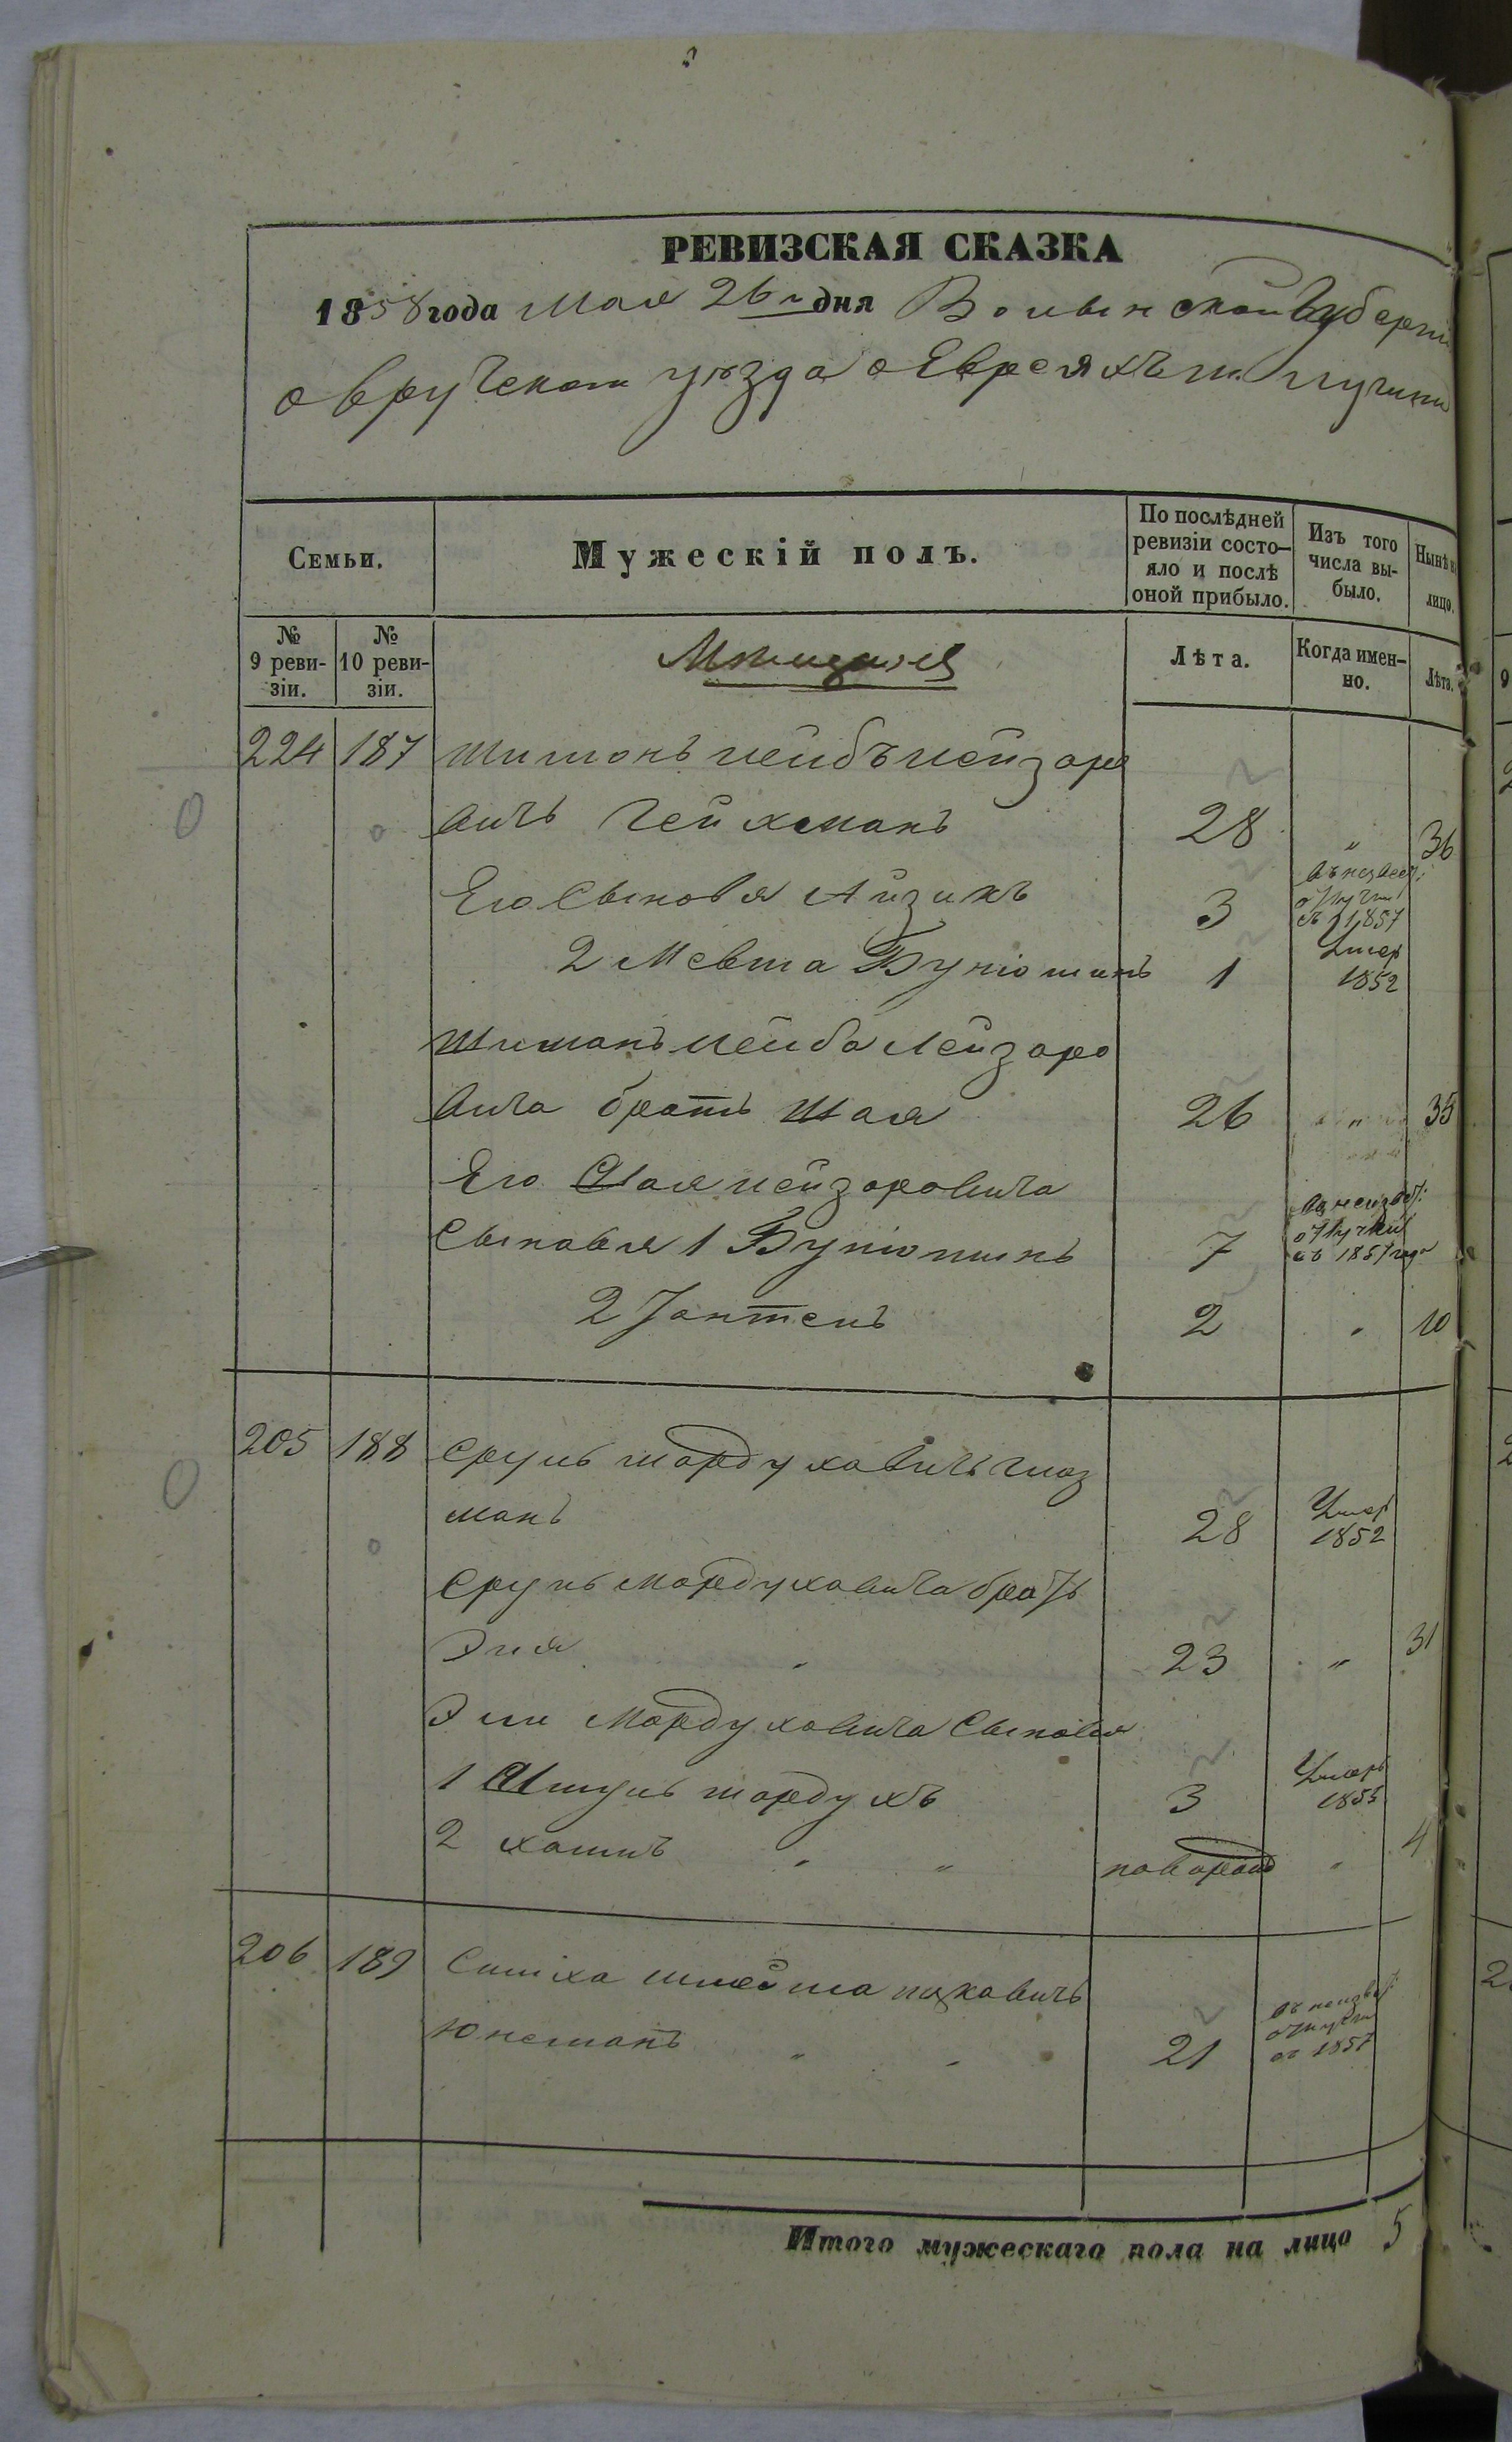 РЕВИЗСКАЯ СКАЗКА
1858 года Мая 26 дня Волынской Губерніи
Овручскаго уѣзда о Евреяхъ м. Лугинъ
Семьи.
Мужескій полъ.
По послѣдней ревизіи состо-
яло и послѣ
оной прибыло.
Изъ того
числа вы-
было.
Нынѣ на
лицо.
№
9 реви-
зіи.
№
10 реви-
зіи.
Лѣта.
Когда имен-
но.
Лѣта.
224 187 Шимонъ Лейбъ Лейзоро
вичъ Гейхманъ 28 " 36
Его Сыновя Айзикъ 3 въ неизвест:
отлучки
съ 1857
2 Мевша Бунюминъ 1 Умер
1852
Шимонъ Лейба Лейзоро
вича братъ Шая 26 " 35
Его Шая Лейзоровича
Сыновья 1 Бунюминъ 7 въ неизвест:
отлучки
съ 1857 года
2 Іонтель 2 " 10
205 188 Сруль Мордуховичъ Глоз
манъ 28 Умер
1852
Сруль Мордуховича братъ
Эля " 23 " 31
Эли Мордуховича Сыновья
1 Шмуль Мордухъ 3 Умеръ
1855
2 Хаимъ " " новорож " 4
206 189 Симха Шлёма
Юнсманъ " " 21 въ неизвест:
отлучки
съ 1857
Итого мужескаго пола на лицо 5